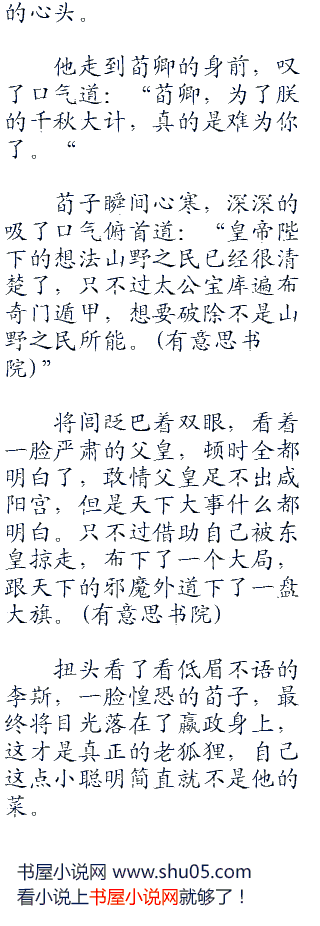 的心头。
他走到荀卿的身前，叹
了口气道：“荀卿，为了朕
的千秋大计，真的是难为你
了。“
荀子瞬间心寒，深深的
吸了口气俯首道：“皇帝陛
下的想法山野之民已经很清
楚了，只不过太公宝库遍布
奇门遁甲，想要破除不是山
野之民所能。(有意思书
院)”
将闾眨巴着双眼，看着
一脸严肃的父皇，顿时全都
明白了，敢情父皇足不出咸
阳宫，但是天下大事什么都
明白。只不过借助自己被东
皇掠走，布下了一个大局，
跟天下的邪魔外道下了一盘
大旗。(有意思书院)
扭头看了看低眉不语的
李斯，一脸惶恐的荀子，最
终将目光落在了嬴政身上，
这才是真正的老狐狸，自己
这点小聪明简直就不是他的
菜。
书屋小说网 www.shu05.com
看小说上书屋小说网就够了！